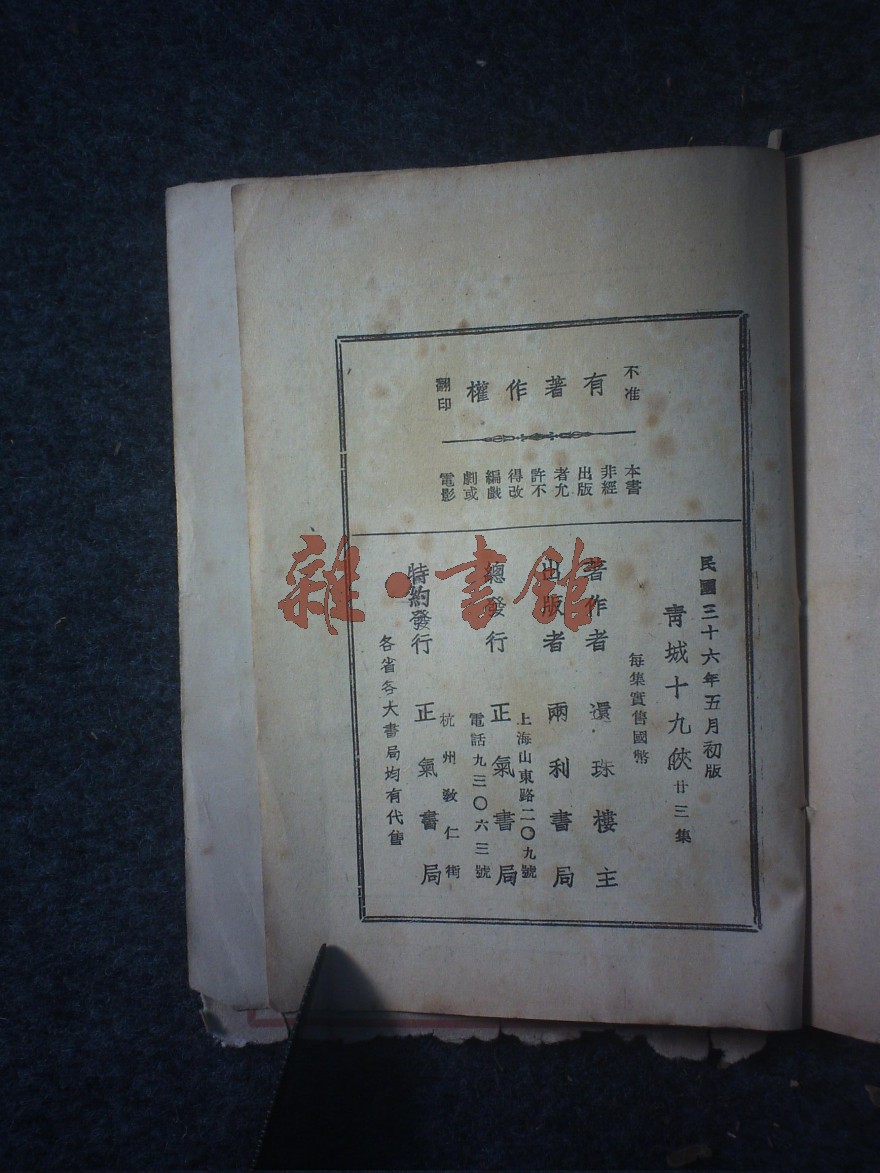 不准
有著作權
翻印
本書
非經
出版
者允
許不
得改
編戲
劇或
電影
民國三十六年五月初版
青城十九俠 廿三集
每集實售國幣
著作者 還珠樓主
出版者 兩利書局
上海山東路二〇九號
總發行 正氣書局
電話九三〇六三號
杭州敎仁街
特約發行 正氣書局
各省各大書局均有代售
雜·書館